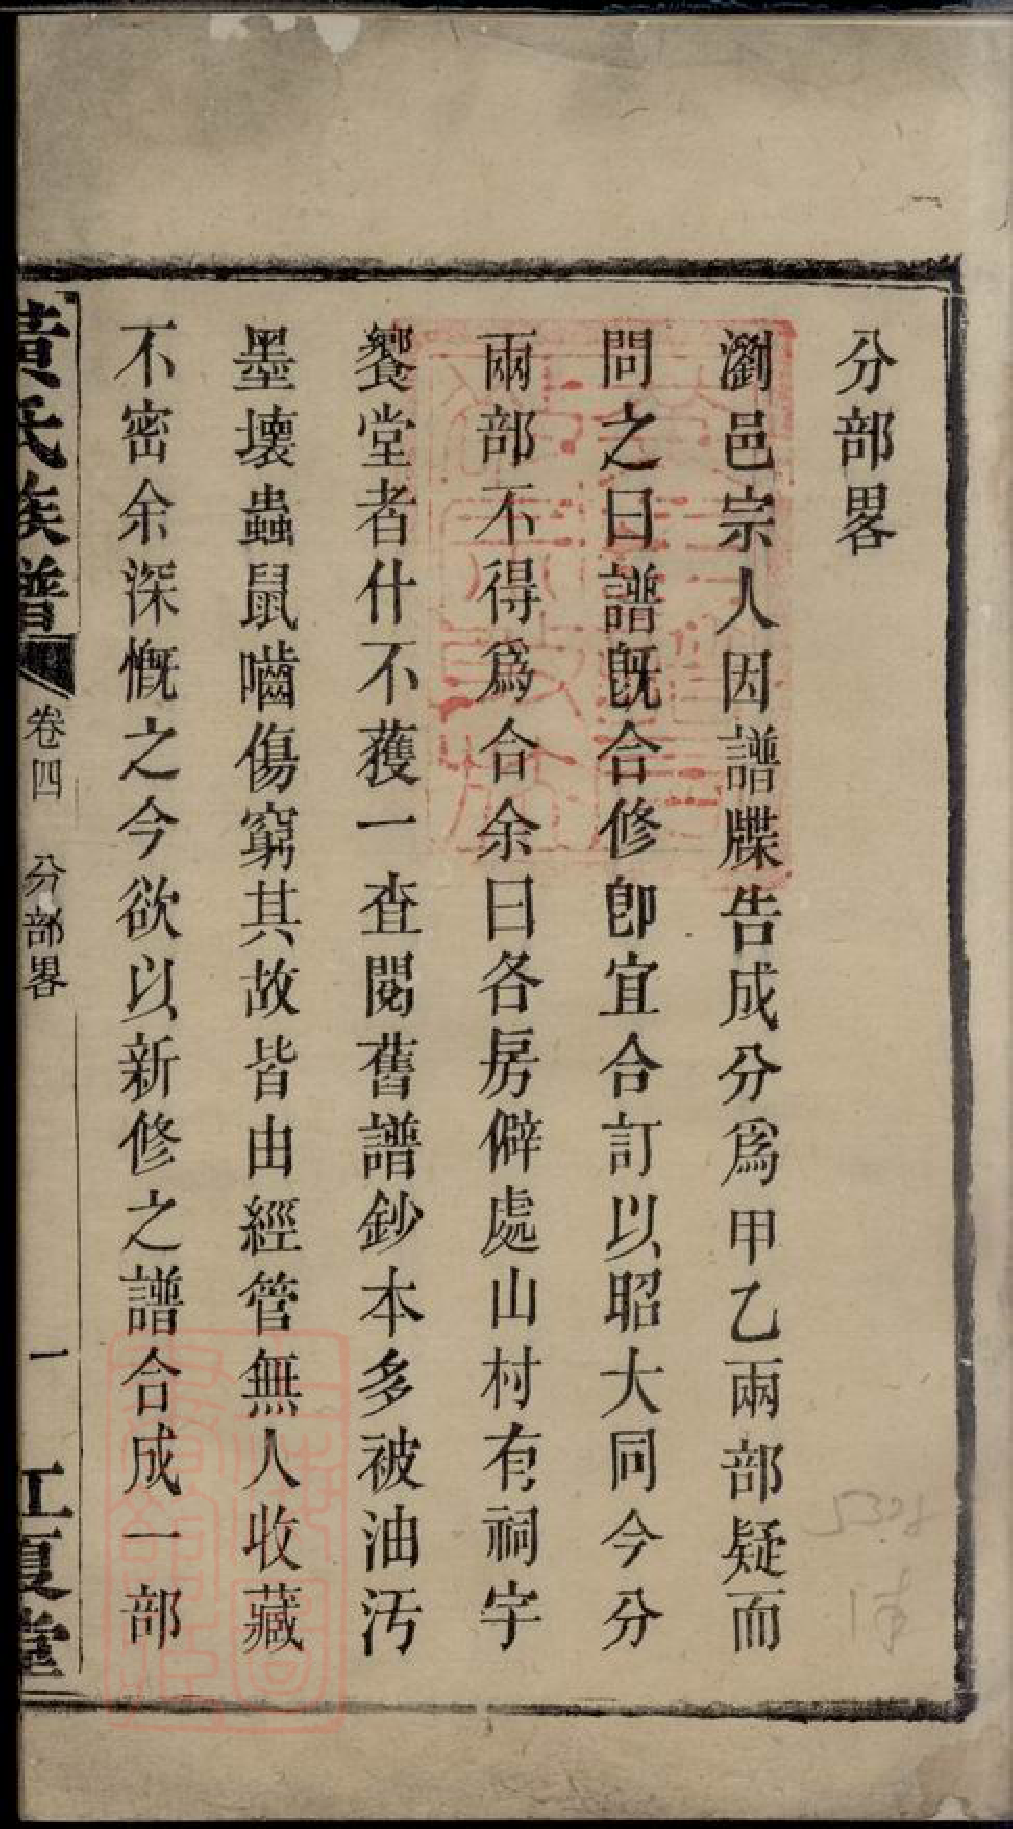 分部畧
瀏邑宗人因譜牒告成分爲甲乙兩部疑而
問之曰譜旣合修卽宜合訂以昭大同今分
兩部不得爲合余曰各房僻處山村有祠宇
饗堂者什不獲一查閱舊譜鈔本多被油汚
墨壞蟲鼠嚙傷窮其故皆由經管無人收藏
不密余深慨之今欲以新修之譜合成一部
黃氏族譜 卷四 分部畧 一 江夏堂